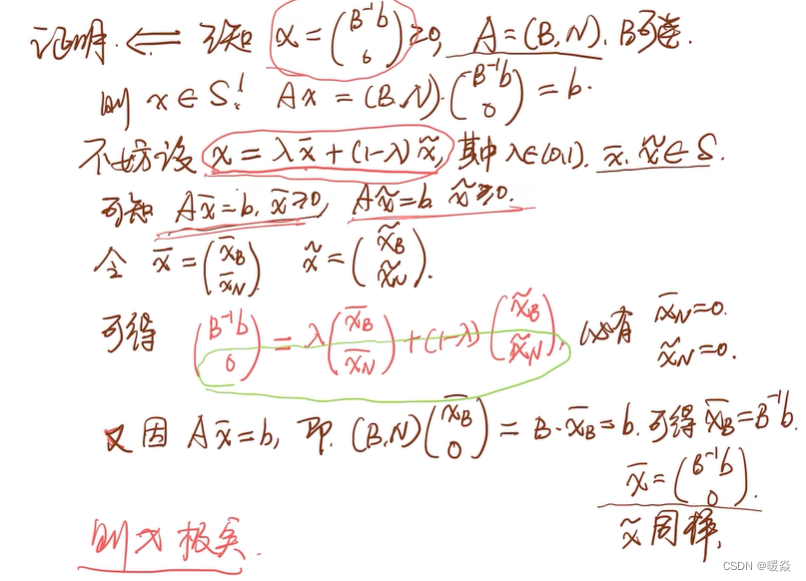 证明. ⇐ 可知 x = (B⁻¹b 0) ≥0, A = (B, N). B可逆.
则 x ∈ S! Ax = (B, N)·(B⁻¹b 0) = b.
不妨设 x = λx̄ + (1-λ)x̃, 其中 λ∈(0,1). x̄, x̃ ∈ S.
可知 Ax̄ = b, x̄ ≥0, Ax̃ = b. x̃ ≥0.
令 x̄ = (x̄_B x̄_N) x̃ = (x̃_B x̃_N).
可得 (B⁻¹b 0) = λ(x̄_B x̄_N) + (1-λ)(x̃_B x̃_N), 必有 x̄_N = 0. x̃_N = 0.
又因 Ax̄ = b, 即. (B, N)(x̄_B 0) = B·x̄_B = b. 可得 x̄_B = B⁻¹b.
x̄ = (B⁻¹b 0).
x̃ 同样,
则 x 极点.
CSDN @暖焱